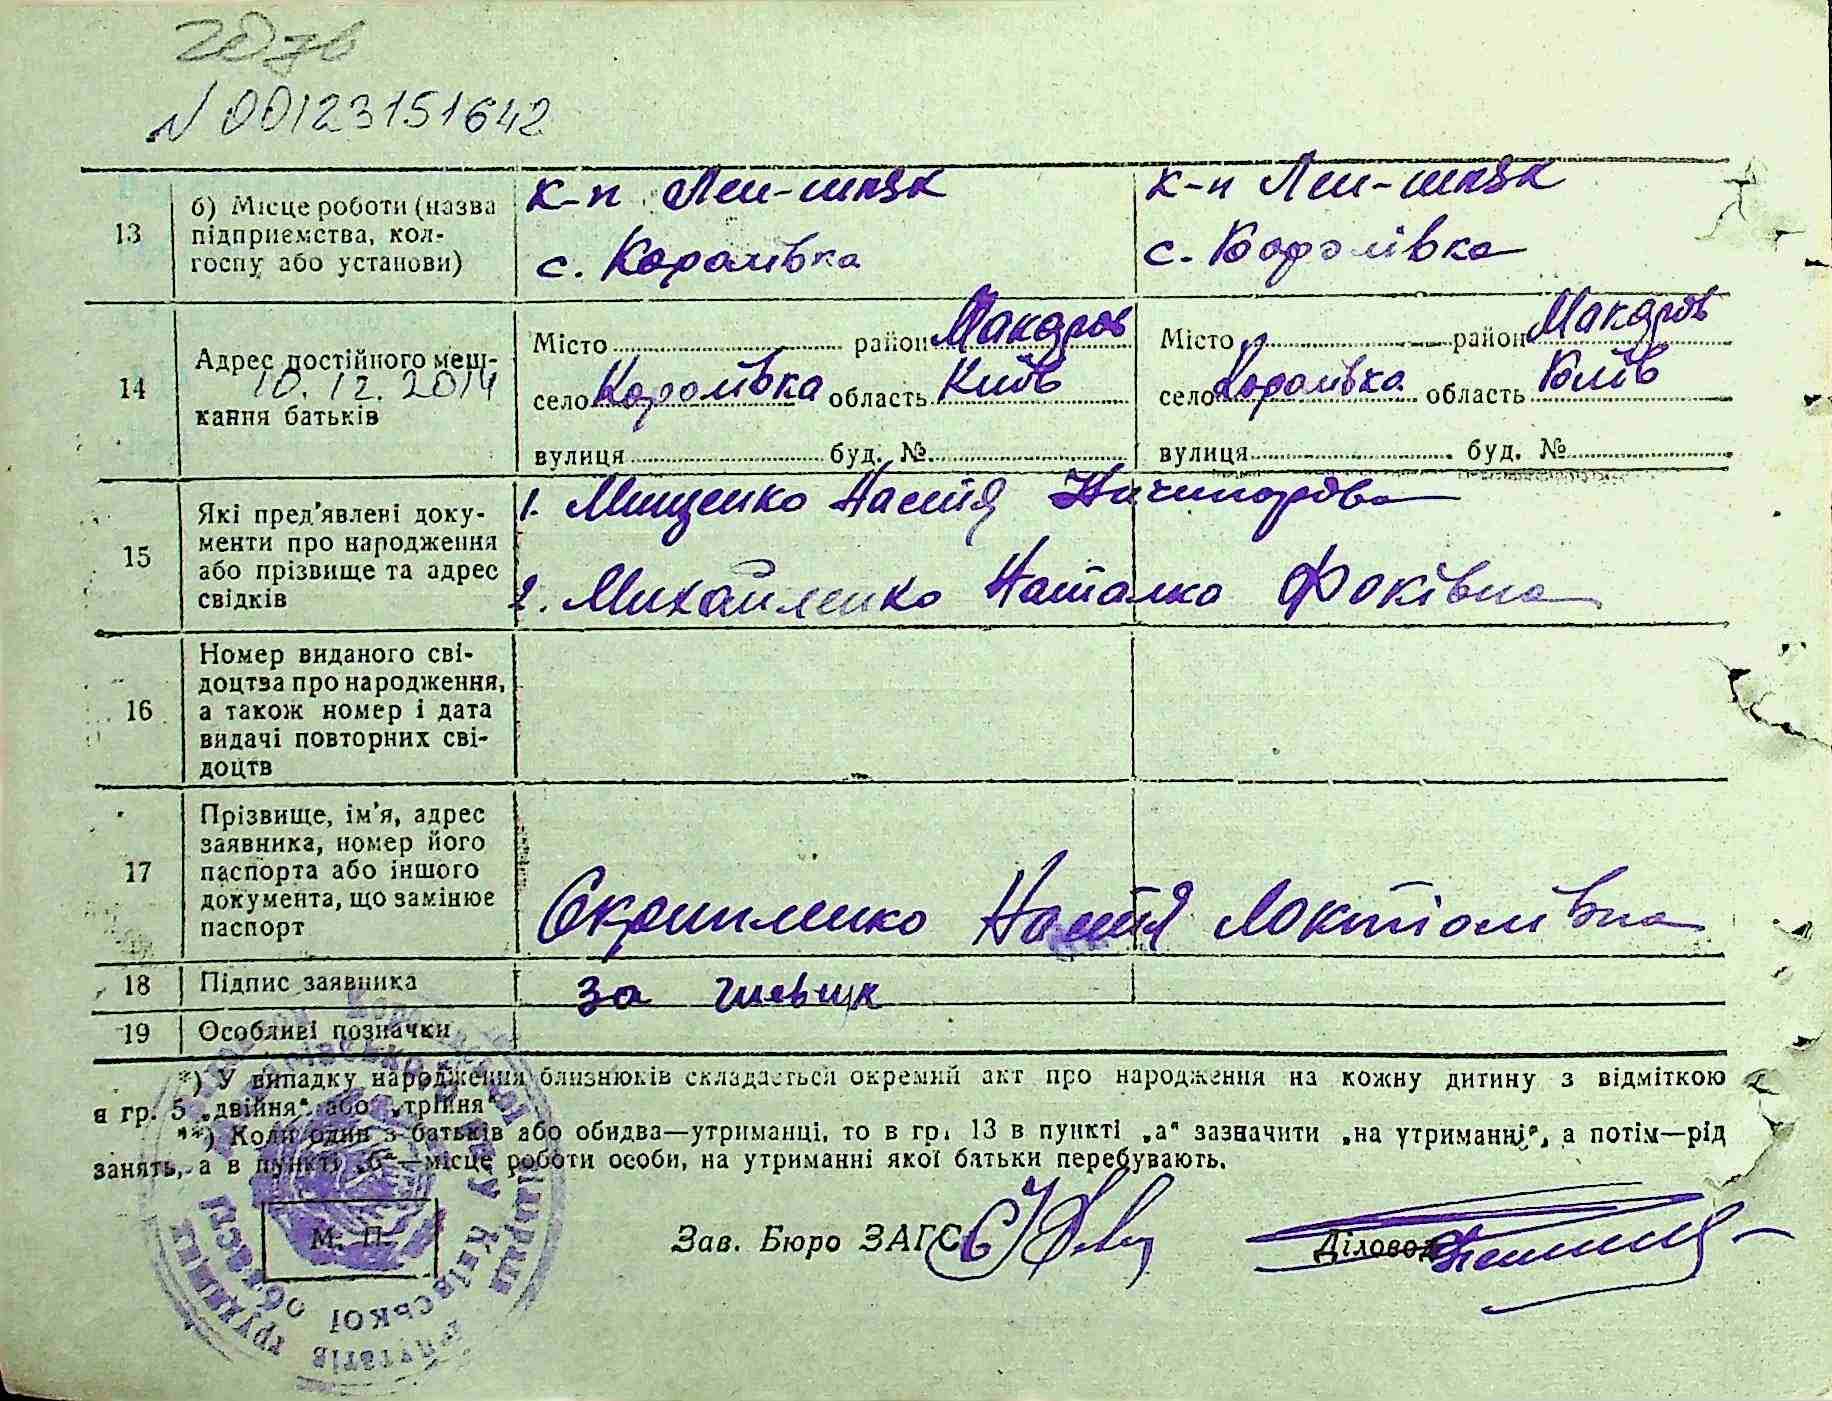 N 00123151642
13
б) Місце роботи (назва
підприємства, кол-
госпу або установи)
к-п Лен-шлях
с. Королівка
к-п Лен-шлях
с. Королівка
14
Адрес постійного меш-
10.12.2014
кання батьків
Місто район Макарів
село Королівка область Київ
вулиця буд. №
Місто район Макарів
село Королівка область Київ
вулиця буд. №
15
Які пред'явлені доку-
менти про народження
або прізвище та адрес
свідків
1. Мищенко Настя Ничипорівна
2. Михайленко Наталка Фоківна
16
Номер виданого сві-
доцтва про народження,
а також номер і дата
видачі повторних сві-
доцтв
17
Прізвище, ім'я, адрес
заявника, номер його
паспорта або іншого
документа, що замінює
паспорт
Скрипченко Настя
18
Підпис заявника
за
19
Особливі позначки
*) У випадку народження близнюків складається окремий акт про народження на кожну дитину з відміткою
в гр. 5 „двійня“ або „трійня“
**) Коли один з батьків або обидва—утриманці, то в гр. 13 в пункті „а“ зазначити „на утриманні“, а потім—рід
занять, а в пункті „б“—місце роботи особи, на утриманні якої батьки перебувають.
М. П.
Зав. Бюро ЗАГС
Діловод
Київської області